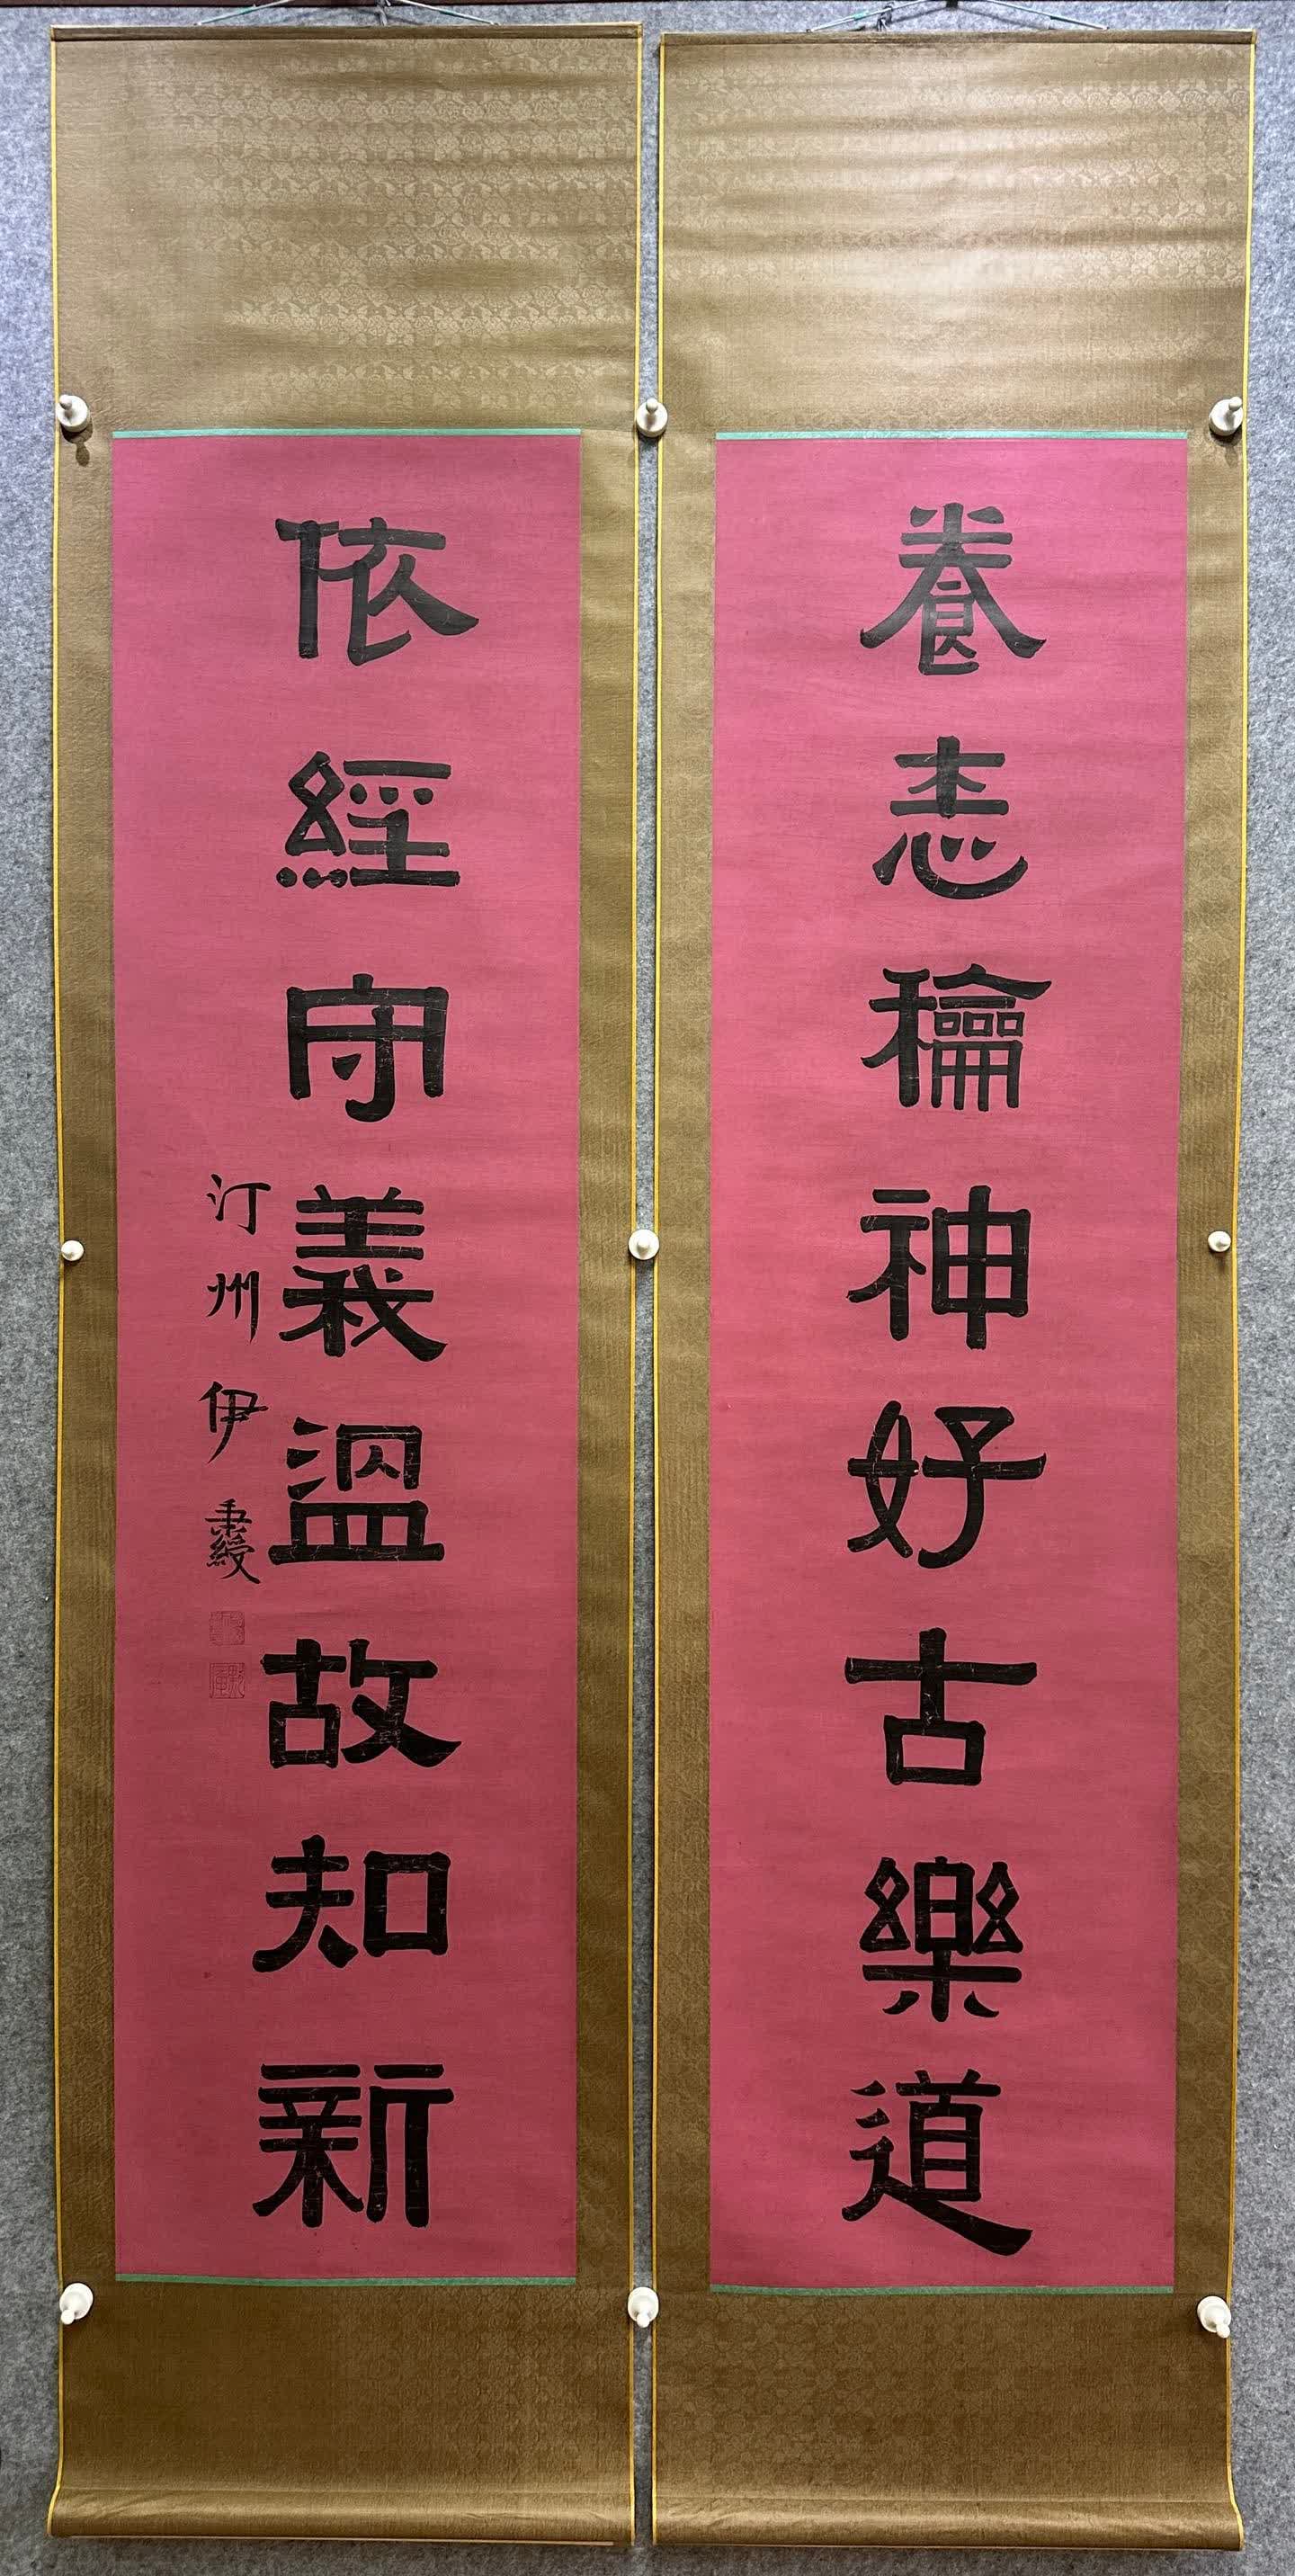 養志龢神好古樂道
依經守義溫故知新
汀州伊秉綬